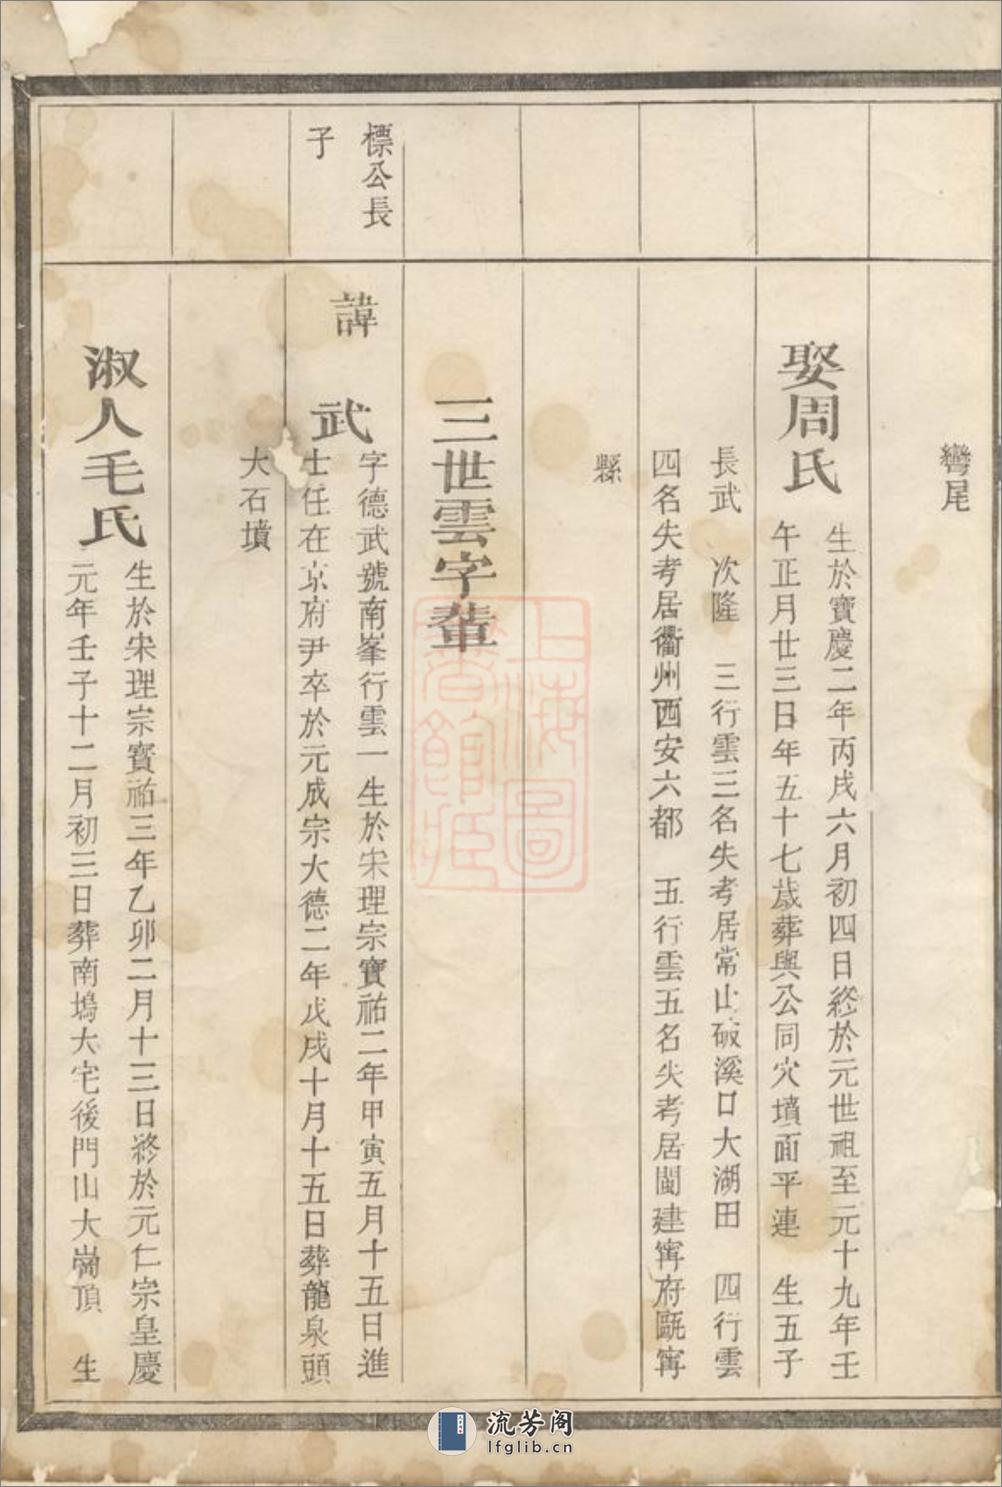 彎尾
娶周氏
生於寶慶二年丙戌六月初四日終於元世祖至元十九年壬
午正月廿三日年五十七歲葬與公同穴墳面平連　生五子
長武　次隆　三行雲三名失考居常山破溪口大湖田　四行雲
四名失考居衢州西安六都　五行雲五名失考居閩建甯府甌甯
縣
三世雲字輩
標公長
子
諱武
字德武號南峯行雲一生於宋理宗寶祐二年甲寅五月十五日進
士任在京府尹卒於元成宗大德二年戊戌十月十五日葬龍泉頭
大石墳
淑人毛氏
生於宋理宗寶祐三年乙卯二月十三日終於元仁宗皇慶
元年壬子十二月初三日葬南塢大宅後門山大崗頂　生
上海圖
書館藏
流芳阁
lfglib.cn